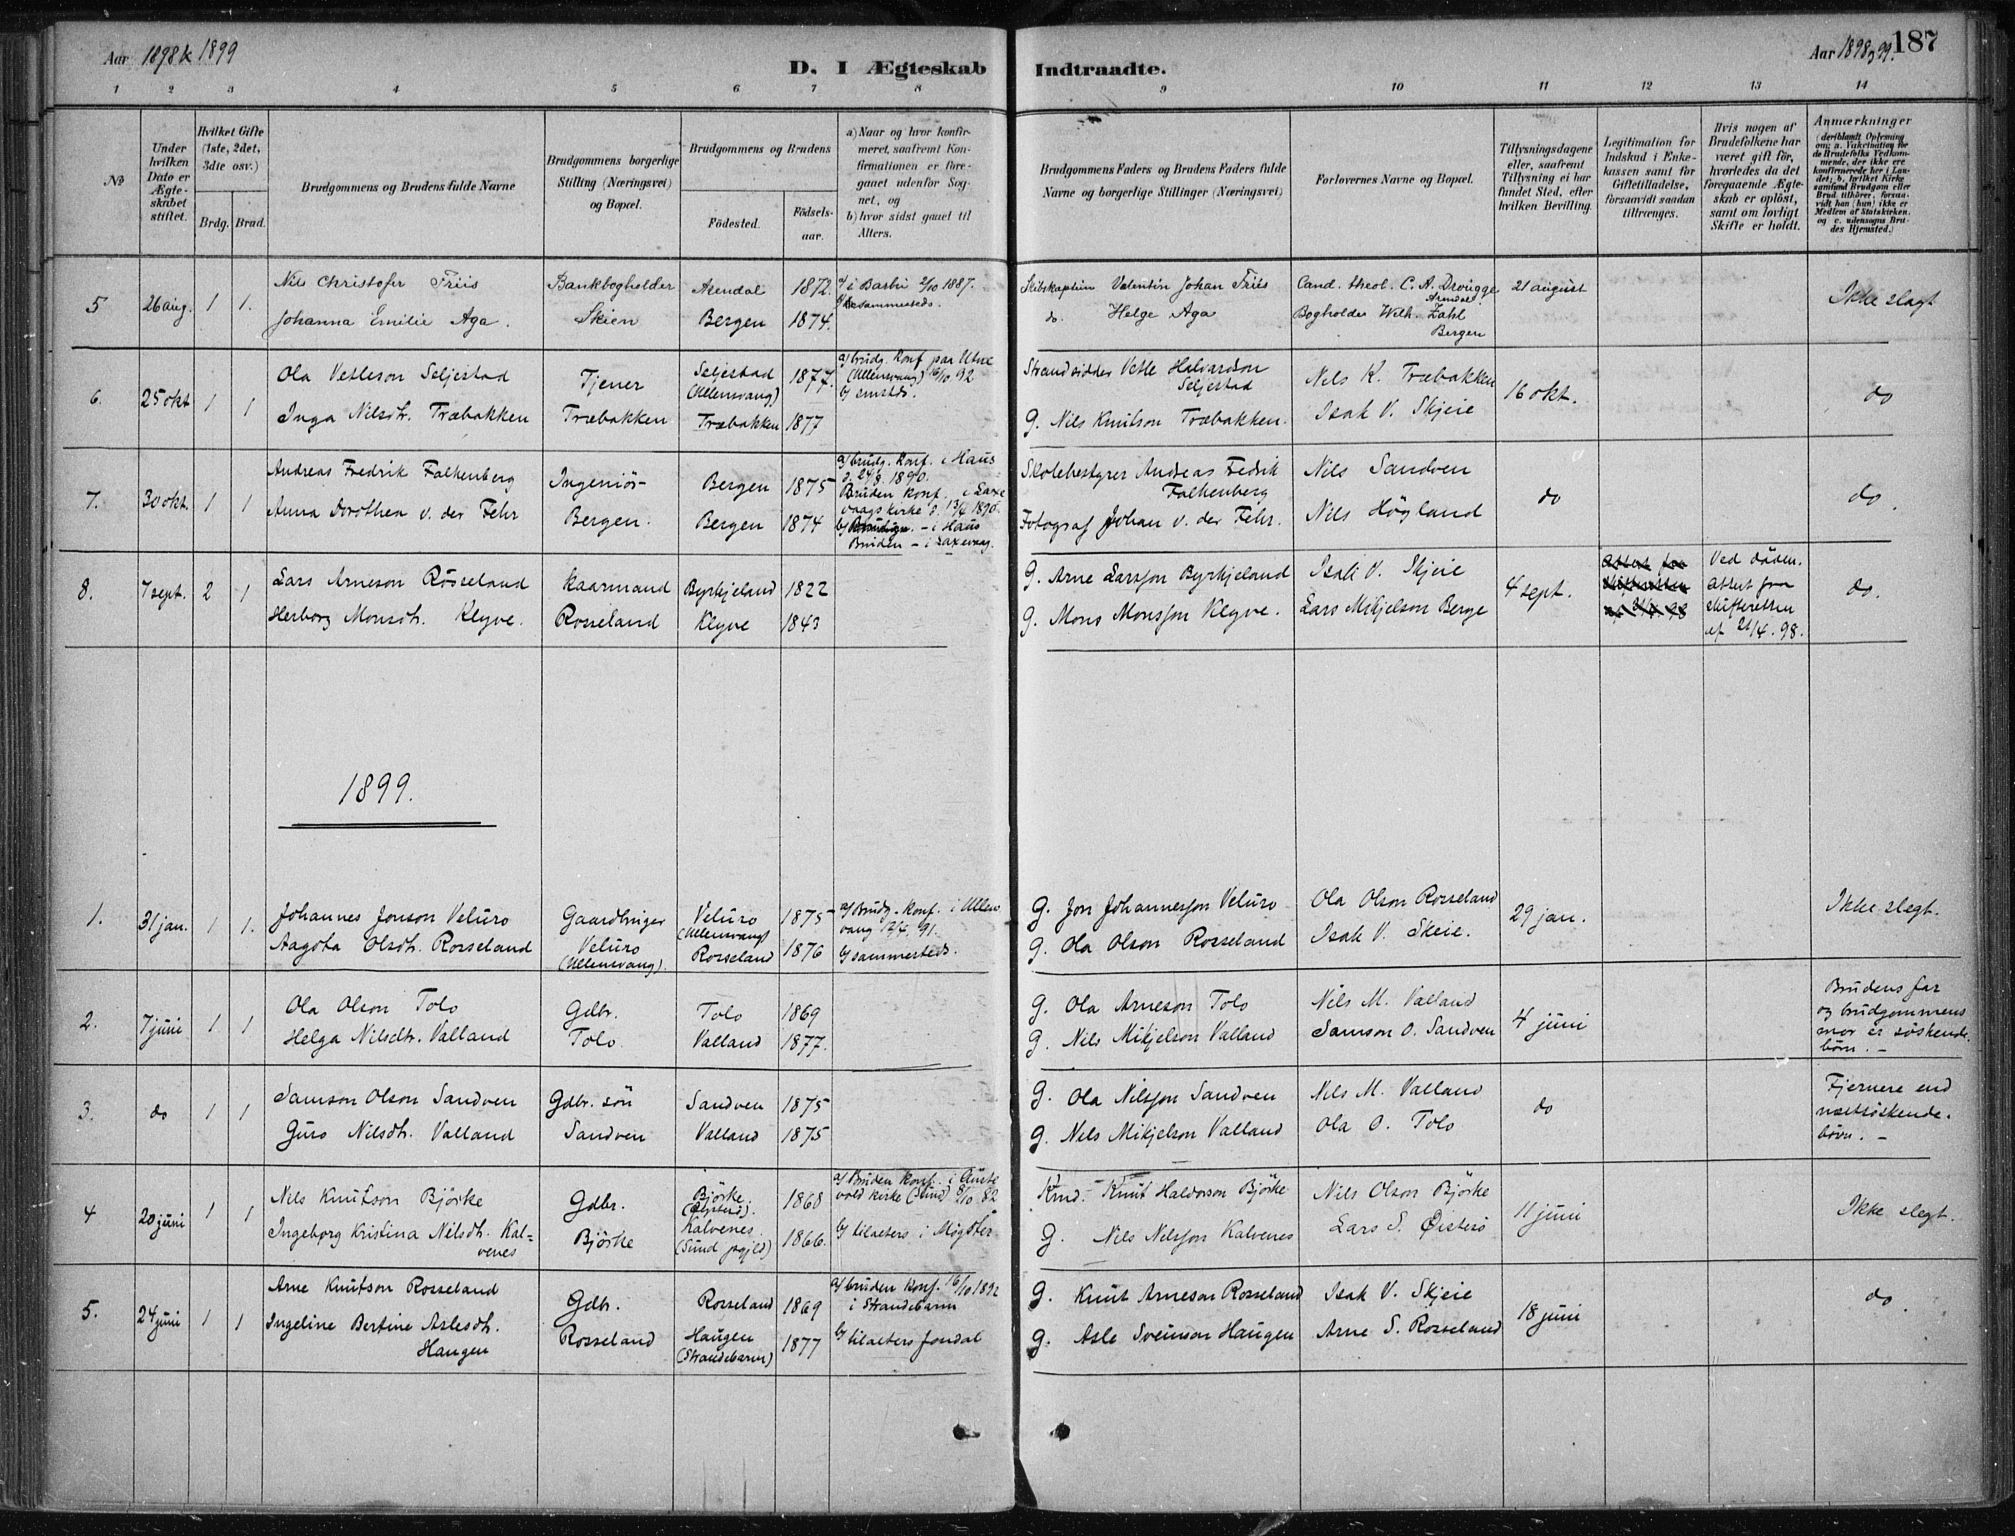 Aar 1898 & 1899
D. I Ægteskab Indtraadte.
Aar 1898 og 99.
187
1 2 3 4 5 6 7 8 9 10 11 12 13 14
№
Under hvilken Dato er Ægteskabet stiftet.
Hvilket Gifte (1ste, 2det, 3die osv.)
Brdg. Brud.
Brudgommens og Brudens fulde Navne
Brudgommens borgerlige Stilling (Næringsvei) og Bopæl.
Brudgommens og Brudens
Fødested.
Fødselsaar.
a) Naar og hvor konfirmeret, saafremt Konfirmationen er foregaaet udenfor Sognet, og
b) hvor sidst gaaet til Alters.
Brudgommens Faders og Brudens Faders fulde Navne og borgerlige Stillinger (Næringsvei)
Forlovernes Navne og Bopæl.
Tillysningsdagene eller, saafremt Tillysning ei har fundet Sted, efter hvilken Bevilling.
Legitimation for Indskud i Enkekassen samt for Giftetilladelse, forsaavidt saadan tiltrænges.
Hvis nogen af Brudefolkene har været gift før, hvorledes da det foregaaende Ægteskab er opløst, samt om lovligt Skifte er holdt.
Anmærkninger (deriblandt Oplysning om: a. Vakcination for de Brudefolks Vedkommende, der ikke ere konfirmerede her i Landet; b. hvilket Kirkesamfund Brudgom eller Brud tilhører, forsaavidt han (hun) ikke er Medlem af Statskirken, og c. udensogns Brudes Hjemsted.)
5 26 aug. 1 1. Nils Christofer Friis Bankbogholder Arendal 1872. a/ i Barbu 2/10 1887. Skibskaptein Valentin Johan Friis Cand. theol. C. A. Drougge 21 august Ikke slegt
Johanna Emilie Aga. Skien Bergen 1874. b/ sammesteds. do. Helge Aga Bogholder Wilh. Zahl
Bergen
6. 25 okt 1 1 Ola Vetleson Seljestad Tjener Seljestad (Ullensvang) 1877. a/ brudg. konf paa Utne (Ullensvang) 16/10 92 Strandsidder Vetle Halvardson Seljestad Nils K. Træbakken 16 okt. do
b/ smsteds.
Inga Nilsdtr. Træbakken Træbakken Træbakken 1877 G. Nils Knutson Træbakken. Isak V. Skjeie
7. 30 okt. 1 1 Andreas Fredrik Falkenberg Ingeniør Bergen 1875 a/ brudg. konf. i Haus d. 24/8. 1890. Skolebestyrer Andreas Fedrik Falkenberg Nils Sandven do do
Anna Dorothea v. der Fehr Bergen. Bergen 1874 Bruden konf. i Laxevaags kirke d. 13/4 1890. Fotograf Johan v. der Fehr. Nils Högland
b/ Brudgm. – i Haus
Bruden – i Laxevaag.
8. 7 sept. 2 1 Lars Arneson Rosseland kaarmand Byrkjeland 1822 G. Arne Larsson Byrkjeland Isak V. Skjeie 4 sept. Ved døden. Attest fra skifteretten af 21/4. 98. do.
Herborg Monsdtr. Klyve. Rosseland Klyve 1843 G. Mons Monsson Klyve. Lars Mikjelson Berge
1899.
1. 31 jan. 1 1. Johannes Jonson Veluro Gaardbruger Veluro (Ullensvang) 1875 a/ Brudg. konf. i Ullensvang 12/4. 91. G. Jon Johannesson Veluro Ola Olson Rosseland 29 jan. Ikke slegt.
Aagota Olsdtr. Rosseland Veluro (Ullensvang). Rosseland 1876 b/ sammesteds. G. Ola Olson Rosseland Isak V. Skeie.
2. 7 juni 1 1 Ola Olson Tolo Gdbr. Tolo 1869 G. Ola Arneson Tolo Nils M. Valland 4 juni Brudens far og brudgommens mor er søskendebørn. –
Helga Nilsdtr. Valland Tolo. Valland 1877. G. Nils Mikjelson Valland Samson O. Sandven
3. do 1 1 Samson Olson Sandven Gdbr. søn Sandven 1875 G. Ola Nilsson Sandven Nils M. Valland do Fjernere end næstsøskendebørn. –
Guro Nilsdtr. Valland Sandven Valland 1875 G. Nils Mikjelson Valland Ola O. Tolo
4 20 juni 1 1 Nils Knutson Björke Gdbr. Björke 1868 a/ Bruden konf. i Austevold kirke (Sund) 8/10 82 Kmd. Knut Haldorson Björke Nils Olson Björke 11 juni Ikke slegt.
Ingeborg Kristina Nilsdtr. Kalvenes Björke Kalvenes (Sund prgjeld) 1866. b/ tilalters i Møgster G. Nils Nilsson Kalvenes Lars S. Øisterø
5. 24 juni 1 1 Arne Knutson Rosseland Gdbr. Rosseland 1869 a/ bruden konf. 16/10 1892 i Strandebarm G. Knut Arneson Rosseland Isak V. Skjeie 18 juni do.
Ingeline Bertine Aslesdtr. Haugen Rosseland Haugen (Strandebarm) 1877 b/ tilalters Jondal G. Asle Sveinson Haugen Arne S. Rosseland